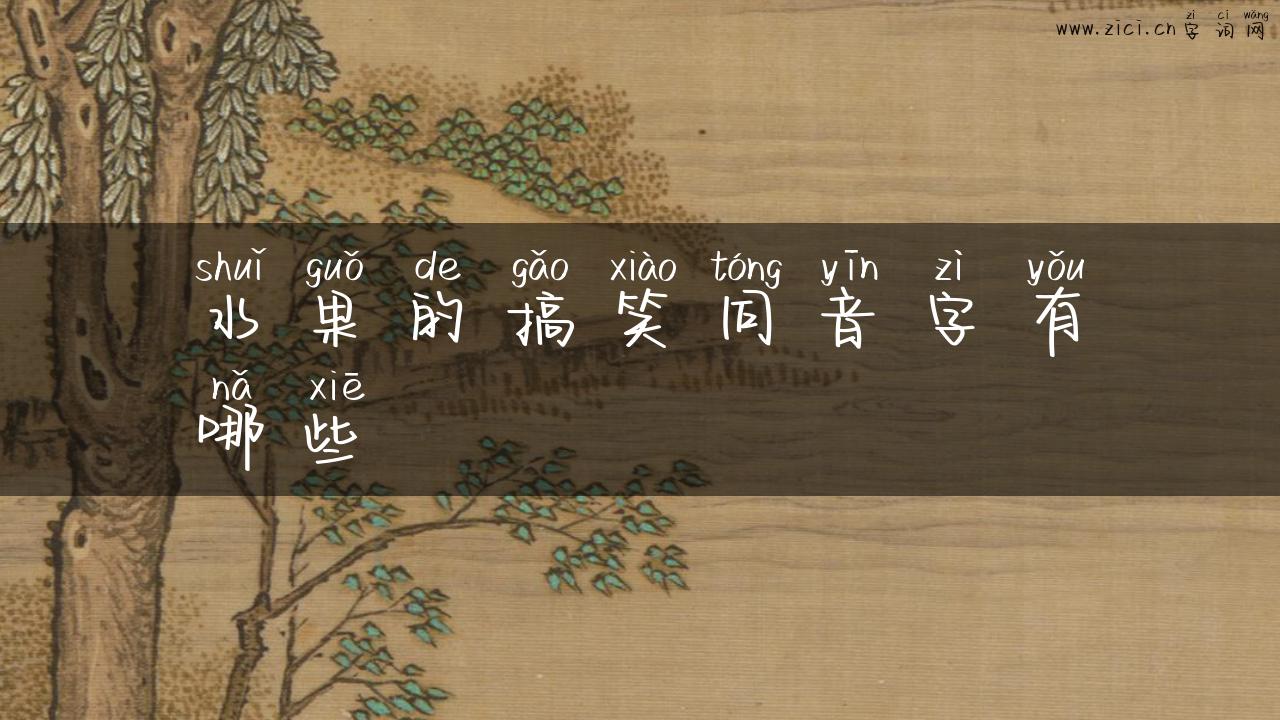 zì cí wǎng
www.zici.cn 字 词 网
shuǐ guǒ de gǎo xiào tóng yīn zì yǒu
水 果 的 搞 笑 同 音 字 有
nǎ xiē
哪 些